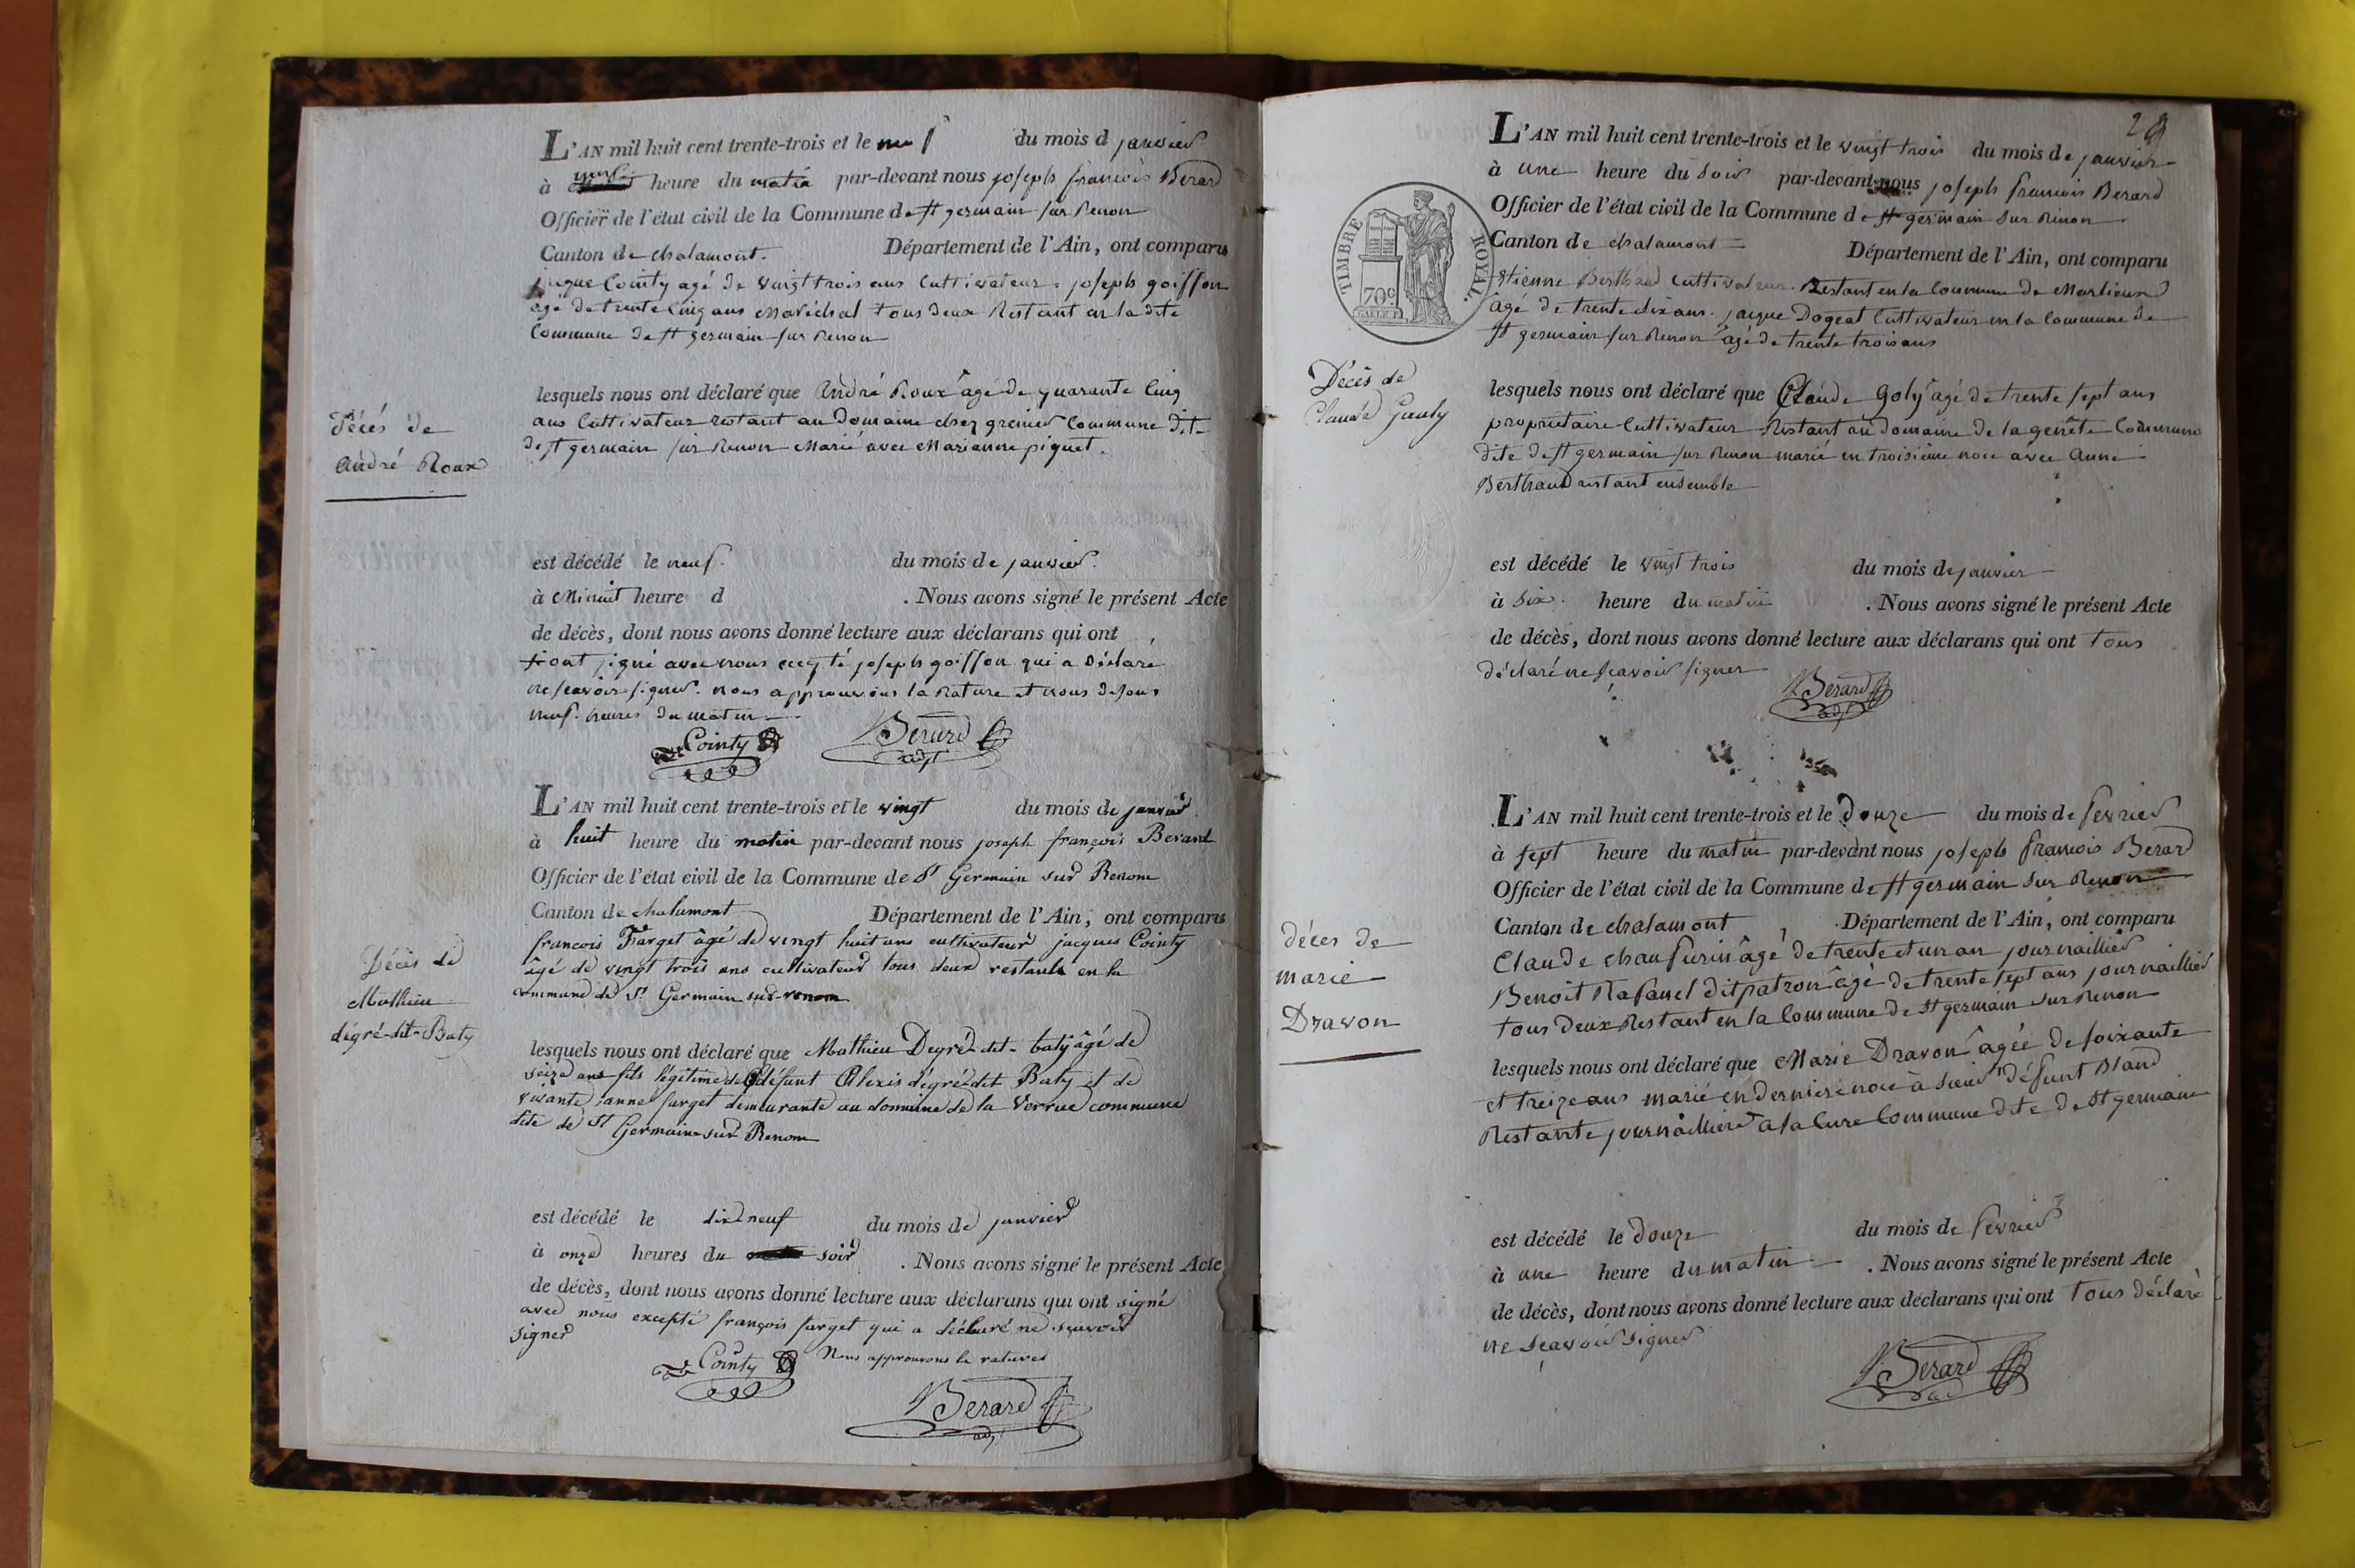 L'AN mil huit cent trente-trois et le neuf du mois d janvier
à neuf heure du matin par-devant nous joseph francois Berard
Officier de l'état civil de la Commune de st germain sur Renon
Canton de chalamont. Département de l'Ain, ont comparu
jaque Cointy agé de vingt trois ans Cultivateur. joseph goiffon
agé de trente Cinq ans Maréchal tous deux Restant en la dite
Commune de st germain sur Renon
lesquels nous ont déclaré que André Roux âgé de quarante Cinq
ans Cultivateur restant au Domaine chez grenier Commune dit
de st germain sur Renon Marié avec Marianne piquet.
Décés de
André Roux
est décédé le neuf. du mois de janvier.
à Minuit heure d . Nous avons signé le présent Acte
de décès, dont nous avons donné lecture aux déclarans qui ont
ont signé avec nous excepté joseph goiffon qui a Déclaré
ne scavoir signer. nous approuvons la Rature et nous disons
neuf. heures du matin
Cointy Berard
adjt
L'AN mil huit cent trente-trois et le vingt du mois de janvier
à huit heure du matin par-devant nous joseph françois Berard
Officier de l'état civil de la Commune de St Germain sur Renom
Canton de chalamont Département de l'Ain, ont comparu
francois Farget âgé de vingt huit ans cultivateur jacques Cointy
âgé de vingt trois ans cultivateur tous deux restants en la
commune de St Germain sur-renom
Décés de
Mathieu
dégré-dit-Baty
lesquels nous ont déclaré que Mathieu Degré-dit-baty âgé de
seize ans fils légitime de défunt Alexis dégré-dit Baty et de
vivante anne farget demeurante au domaine de la Verrue commune
dite de St Germain sur Renom
est décédé le dix neuf du mois de janvier
à onze heures du soir . Nous avons signé le présent Acte
de décès, dont nous avons donné lecture aux déclarans qui ont signé
avec nous excepté françois farget qui a déclaré ne sçavoir
signer
Cointy Nous approuvons la ratures
Berard
adj
29
L'AN mil huit cent trente-trois et le vingt trois du mois de janvier
à une heure du soir par-devant nous joseph francois Berard
Officier de l'état civil de la Commune de st germain sur Renon
Canton de chalamont Département de l'Ain, ont comparu
TIMBRE ROYAL.
70c
Etienne Berthaud Cultivateur Restant en la Commune de Marlieux
âgé de trente six ans. jacque Dogeat Cultivateur en la Commune de
st germain sur Renon âgé de trente trois ans
Décès de
Claude Gauly
lesquels nous ont déclaré que Claude Goly âgé de trente sept ans
propriétaire Cultivateur Restant au domaine de la genête Commune
dite de st germain sur Renon marié en troisième noce avec Anne
Berthaud restant ensemble
est décédé le vingt trois du mois de janvier
à six heure du matin . Nous avons signé le présent Acte
de décès, dont nous avons donné lecture aux déclarans qui ont tous
déclaré ne scavoir signer
Berard
adj
L'AN mil huit cent trente-trois et le Douze du mois de fevrier
à sept heure du matin par-devant nous joseph francois Berard
Officier de l'état civil de la Commune de st germain sur Renon
Canton de chalamont Département de l'Ain, ont comparu
Claude chanfurin âgé de trente et un an journaillier
Benoit Rafanel dit patron âgé de trente sept ans journaillier
tous Deux Restant en la Commune de St germain sur Renon
déces de
marie
Dravon
lesquels nous ont déclaré que Marie Dravon âgée de soixante
et treize ans marié en derniere noce à Défunt Bland
Restante journaillière a la Cure Commune dite de St germain
est décédé le Douze du mois de fevrier
à une heure du matin . Nous avons signé le présent Acte
de décès, dont nous avons donné lecture aux déclarans qui ont tous déclaré
ne sçavoir signer
Berard
ad